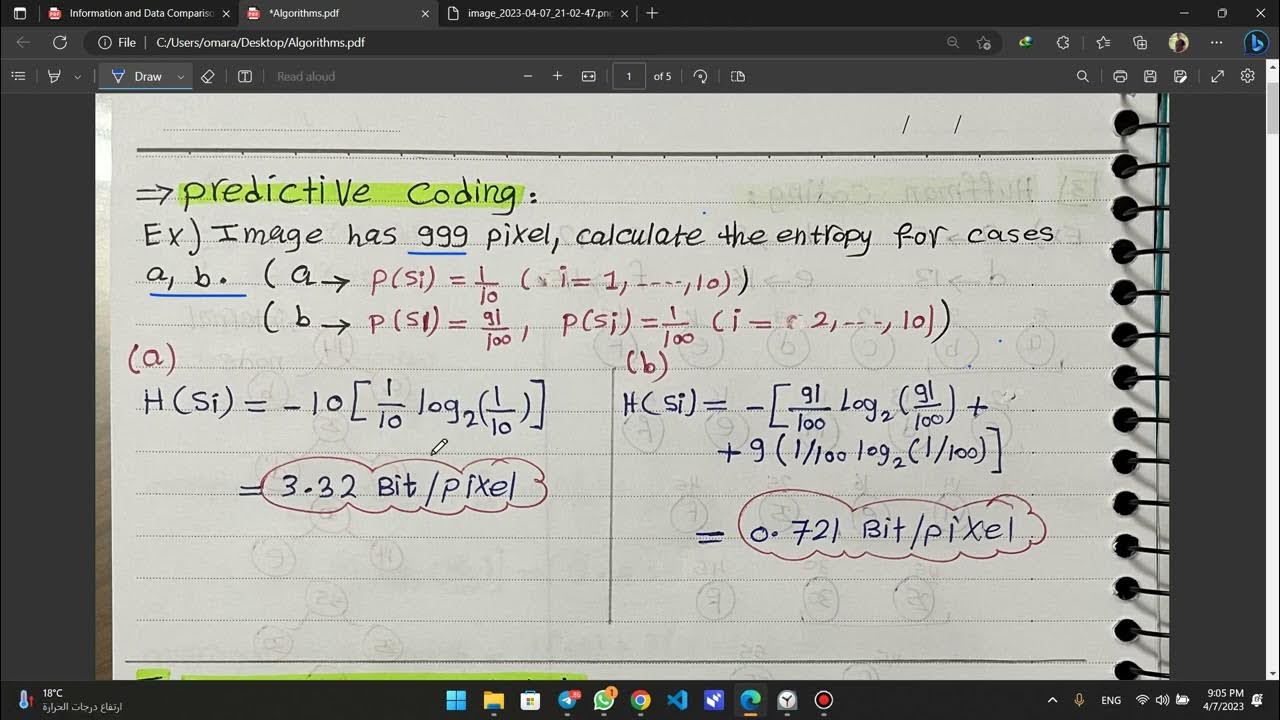 Information and Data Compariso
*Algorithms.pdf
image_2023-04-07_21-02-47.png
File C:/Users/omara/Desktop/Algorithms.pdf
Draw Read aloud 1 of 5
/ /
⇒ predictive coding:
Ex) Image has 999 pixel, calculate the entropy for cases
a, b. ( a → P(Si) = 1/10 ( i = 1, ----, 10) )
( b → P(S1) = 91/100, P(Si) = 1/100 ( i = 2, ---, 10) )
(a)
H(Si) = -10 [ 1/10 log2(1/10) ]
= 3.32 Bit/pixel
(b)
H(Si) = - [ 91/100 Log2(91/100) +
+ 9 (1/100 log2(1/100) ]
= 0.721 Bit/pixel
18°C
ارتفاع درجات الحرارة
ENG
9:05 PM
4/7/2023